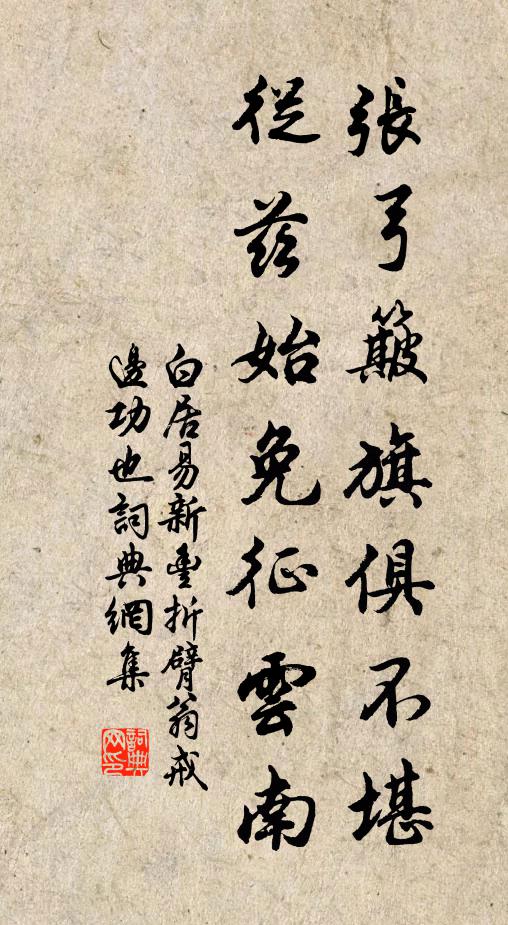 張弓簸旗俱不堪
從茲始免征雲南
白居易新豐折臂翁戒
邊功也詞典網集
詞典
网印